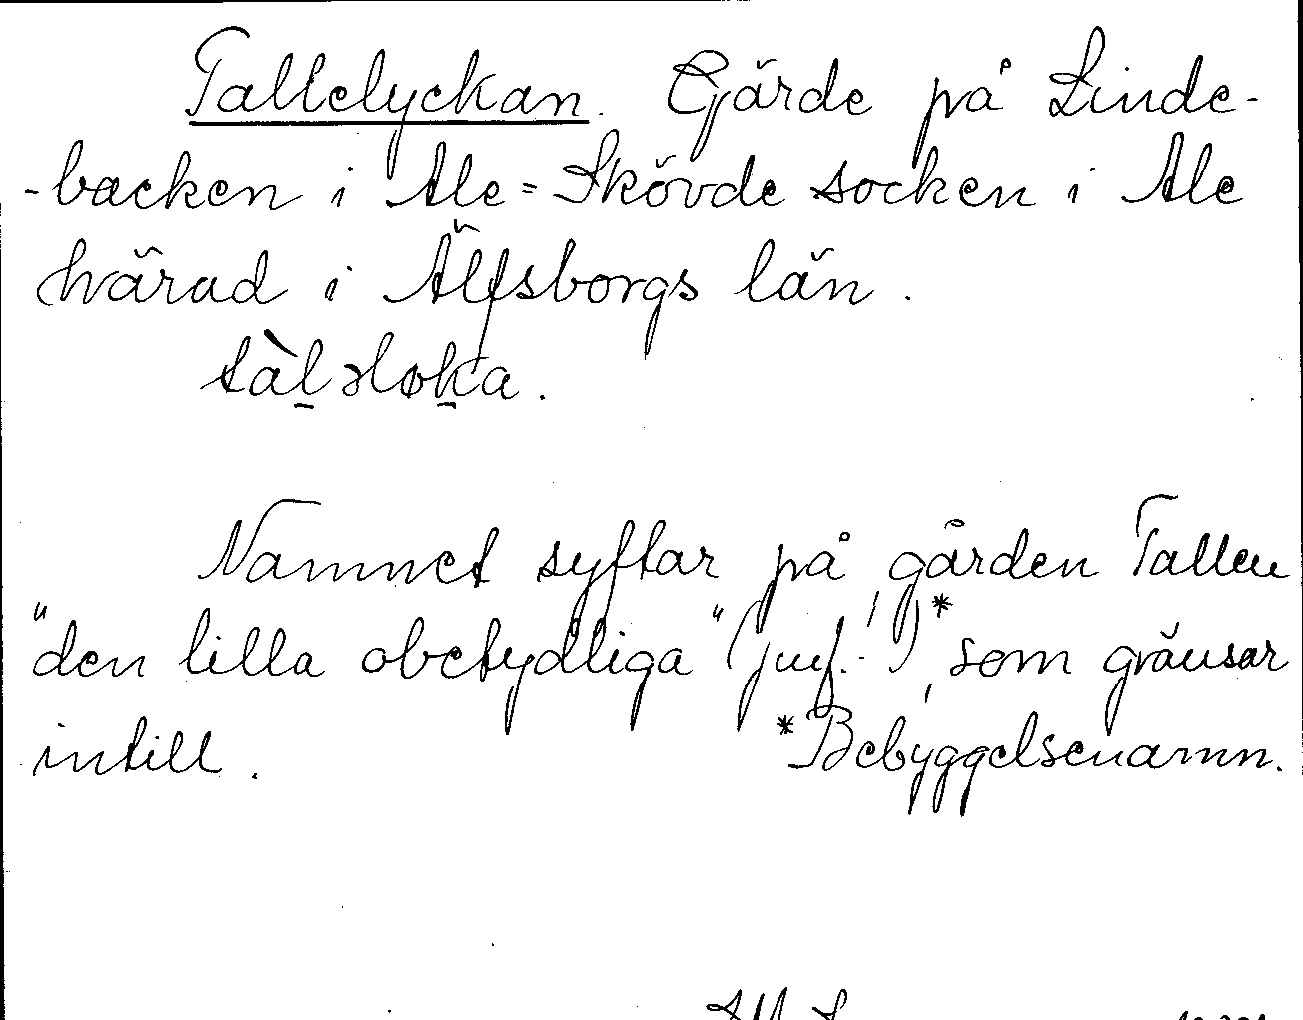 Tallelyckan. Gärde på Linde-
-backen i Ale=Skövde socken i Ale
härad i Älfsborgs län.
tàlsløka.
Namnet syftar på gården Tallen
"den lilla obetydliga" (jmf. - !)*, som gränsar
intill. *Bebyggelsenamn.